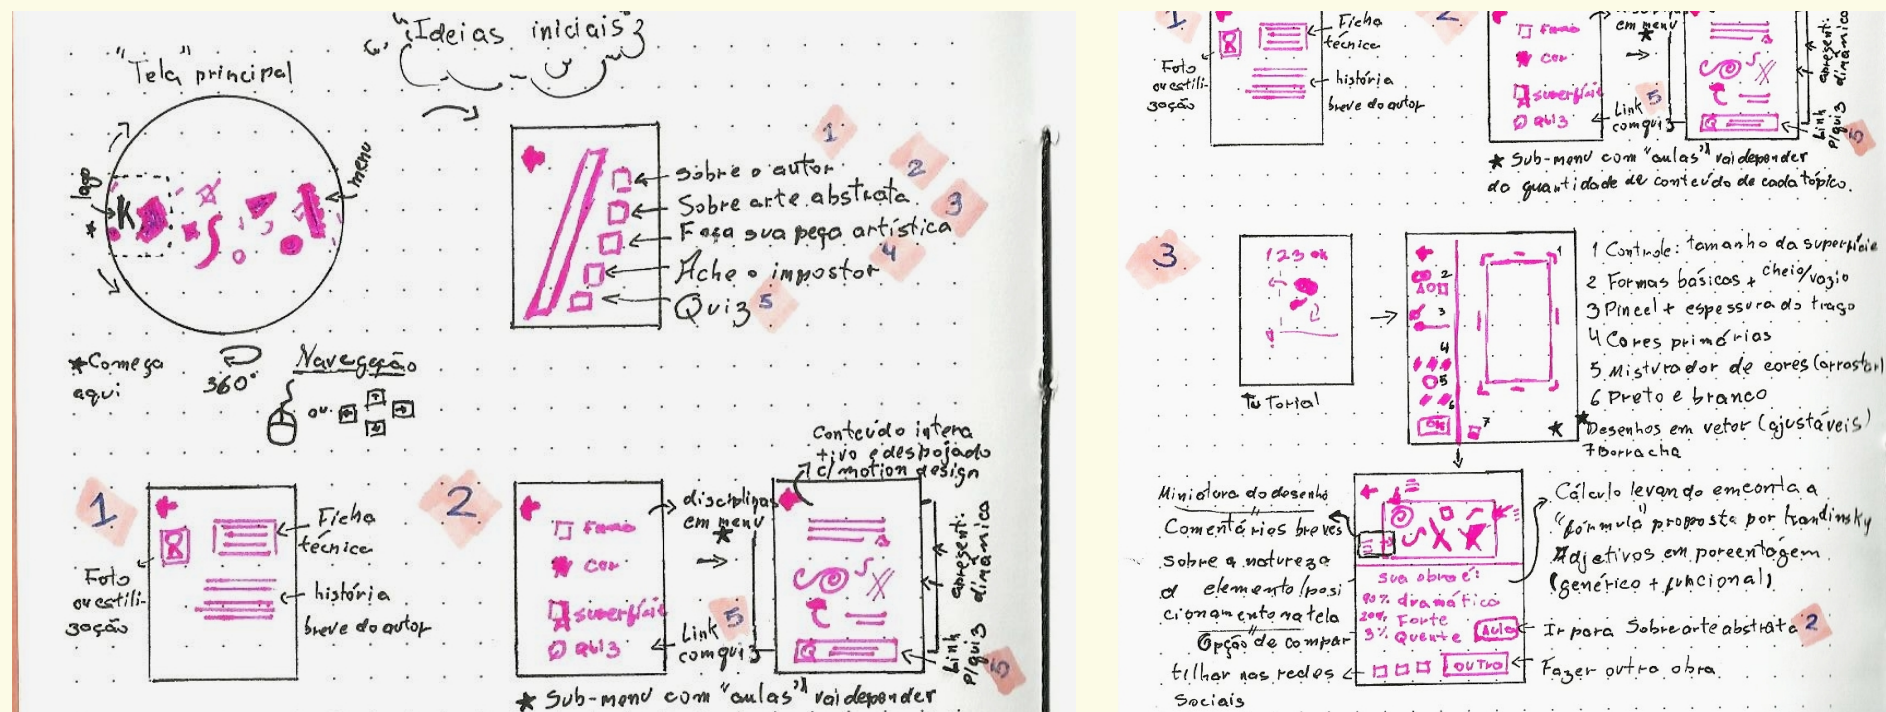 "Ideias iniciais"
"Tela" principal
logo
menu
K
*
*Começa
aqui
360°
Navegação
ou
1
2
3
4
5
Sobre o autor
Sobre arte abstrata
Faça sua peça artística
Ache o impostor
Quiz
1
Foto
ou estili-
zação
Ficha
técnica
história
breve do autor
2
forma
cor
superfície
Quiz
disciplinas
em menu
*
Link
com quiz
5
Conteúdo intera
tivo e despojado
c/ motion design
apresent:
dinâmico
Link
p/quiz
5
* Sub-menu com "aulas" vai depender
1
2
Foto
ou estili-
zação
Ficha
técnica
história
breve do autor
forma
cor
superfície
Quiz
em menu
*
Link
com quiz
5
apresent:
dinâmico
Link
p/quiz
5
* Sub-menu com "aulas" vai depender
da quantidade de conteúdo de cada tópico.
3
1 2 3 ok
Tutorial
1
2
3
4
5
6
OK
7
*
1 Controle: tamanho da superfície
2 Formas básicas + cheio/vazio
3 Pincel + espessura do traço
4 Cores primárias
5 Misturador de cores (arrastar)
6 Preto e branco
* Desenhos em vetor (ajustáveis)
7 Borracha
Miniatura do desenho
Comentários breves
sobre a natureza
d elemento/posi
cionamento na tela
Opção de compar
tilhar nas redes
Sociais
sua obra é:
90% dramático
20% Forte
3% Quente
Aula
OUTRO
Cálculo levando em conta a
"fórmula" proposta por kandinsky
Adjetivos em porcentagem
(genérico + funcional)
Ir para Sobre arte abstrata 2
Fazer outra obra